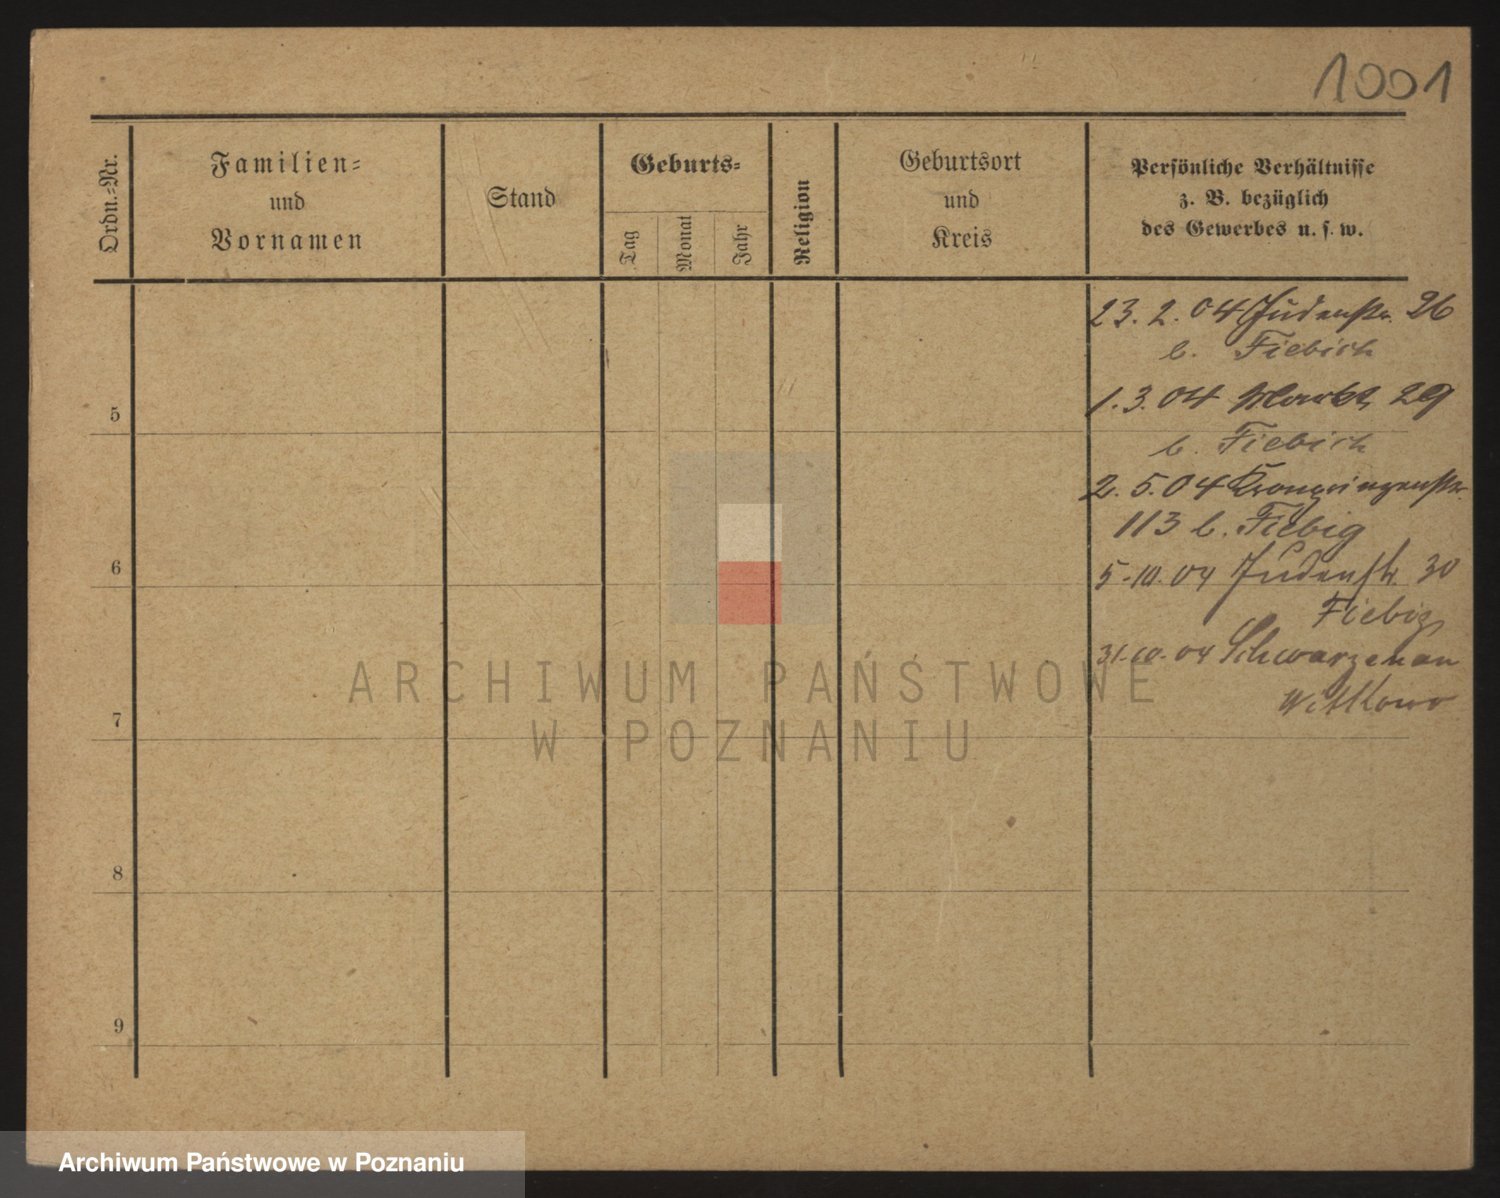 1001
Ordn.-Nr.
Familien-
und
Vornamen
Stand
Geburts-
Tag
Monat
Jahr
Religion
Geburtsort
und
Kreis
Persönliche Verhältnisse
z. B. bezüglich
des Gewerbes u. s. w.
23. 2. 04 Judenstr. 26
b. Fiebich
5
1. 3. 04 Markt 29
b. Fiebich
2. 5. 04 Kronprinzenstr.
113 b. Fiebig
6
5.10.04 Judenstr 30
Fiebig
31.10.04 Schwarzenau
Witkowo
7
8
9
ARCHIWUM PAŃSTWOWE
W POZNANIU
Archiwum Państwowe w Poznaniu